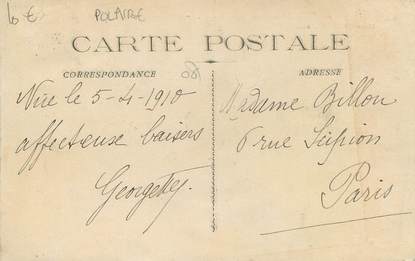 10 € POLAIRE
CARTE POSTALE
CORRESPONDANCE
ADRESSE
Nice le 5-4-1910
affectueux baisers
Georgette
Madame Billon
6 rue Scipion
Paris